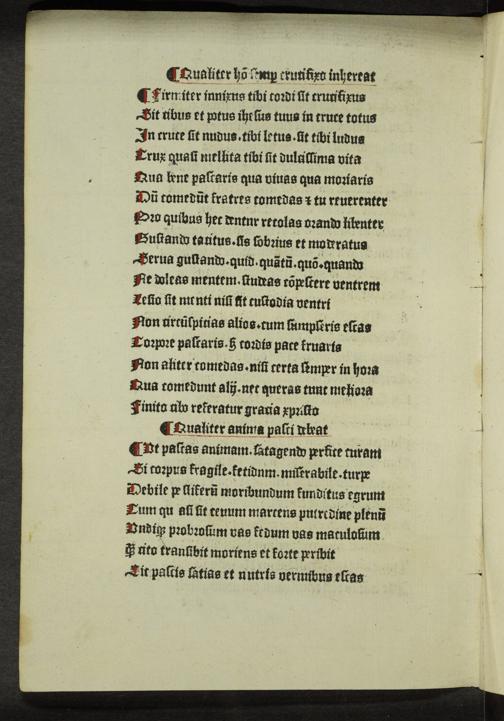 ¶ Qualiter hō semp crucifixo inhereat
¶ Firmiter innixus tibi cordi sit crucifixus
Sit cibus et potus ihesus tuus in cruce totus
In cruce sit nudus. tibi letus. sit tibi ludus
Crux quasi mellita tibi sit dulcissima vita
Qua bene pascaris qua viuas qua moriaris
Dū comedūt fratres comedas ⁊ tu reuerenter
Pro quibus hec dentur recolas orando libenter
Gustando tacitus. sis sobrius et moderatus
Serua gustando. quid. quātū. quō. quando
Ne doleas mentem. studeas cōpescere ventrem
Lesio sit menti nisi sit custodia ventri
Non circūspicias alios. cum sumpseris escas
Corpore pascaris. ꝫ cordis pace fruaris
Non aliter comedas. nisi certa semper in hora
Qua comedunt alij. nec queras tunc meliora
Finito cibo referatur gracia xpristo
¶ Qualiter anima pasci debeat
¶ Ut pascas animam. satagendo perfice curam
Si corpus fragile. fetidum. miserabile. turpe
Debile pestiferū moribundum funditus egrum
Cum quasi sit cenum marcens putredine plenū
Undiqꝫ probrosum vas fedum vas maculosum
Qꝫ cito transibit moriens et forte peribit
Sic pascis satias et nutris vermibus escas